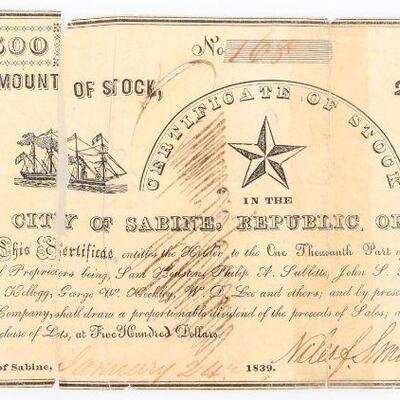 500
No. 168
MOUNT OF STOCK,
CERTIFICATE OF STOCK
IN THE
CITY OF SABINE, REPUBLIC, OF
This Certificate, entitles the Holder, to the One Thousandth Part of
l Proprietors being, Sam Houston, Philip A. Sublette, John S.
Kellogg, George Wm. Hockley, W. D. Lee and others; and by prese
Company, shall draw a proportionable dividend of the proceeds of Sales; a
chase of Lots, at Five Hundred Dollars.
of Sabine, January 24th 1839.